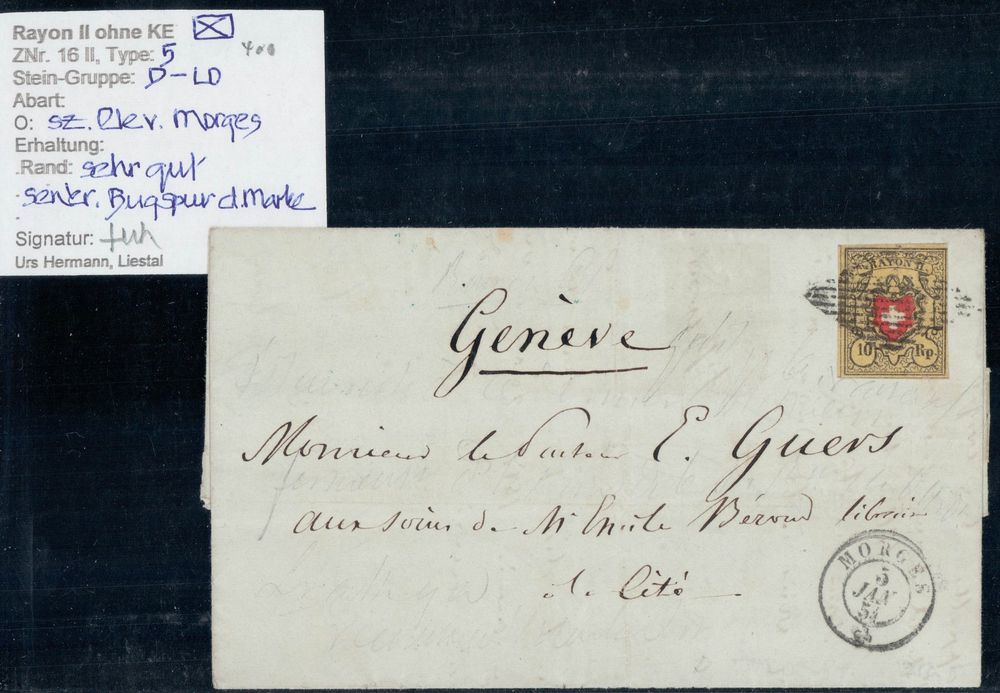 Rayon II ohne KE
400
ZNr. 16 II, Type: 5
Stein-Gruppe: D-LO
Abart:
O: sz. Morges
Erhaltung:
Rand: sehr gut
senkr. Bugspur d. Marke
Signatur:
Urs Hermann, Liestal
RAYON II.
10 Rp.
Genève
Monsieur le Pasteur E. Guers
aux soins de Mr Emile Béroud libraire
de Cité
MORGES
5
JAN
54